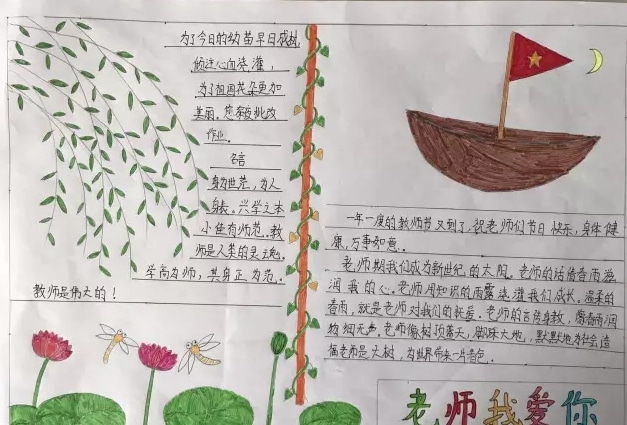 为了今日的幼苗早日成材,
倾注心血浇灌,
为了祖国花朵更加
美丽。您辛勤批改
作业。
名言
身为世范,为人
身教。兴学之本
小住有师范。教
师是人类的灵魂。
学高为师,其身正为范。
教师是伟大的!
一年一度的教师节又到了,祝老师们节日快乐,身体健
康,万事如意。
老师期我们成为新世纪的太阳。老师的话像春雨滋
润我的心。老师用知识的雨露浇灌我们成长。温柔的
春雨,就是老师对我们的抚爱。老师的言传身教,像春雨润
物细无声。老师像树顶蓝天,脚踩大地,默默地为社会造
福老师是大树,为世界带来一片春色。
老师我爱你